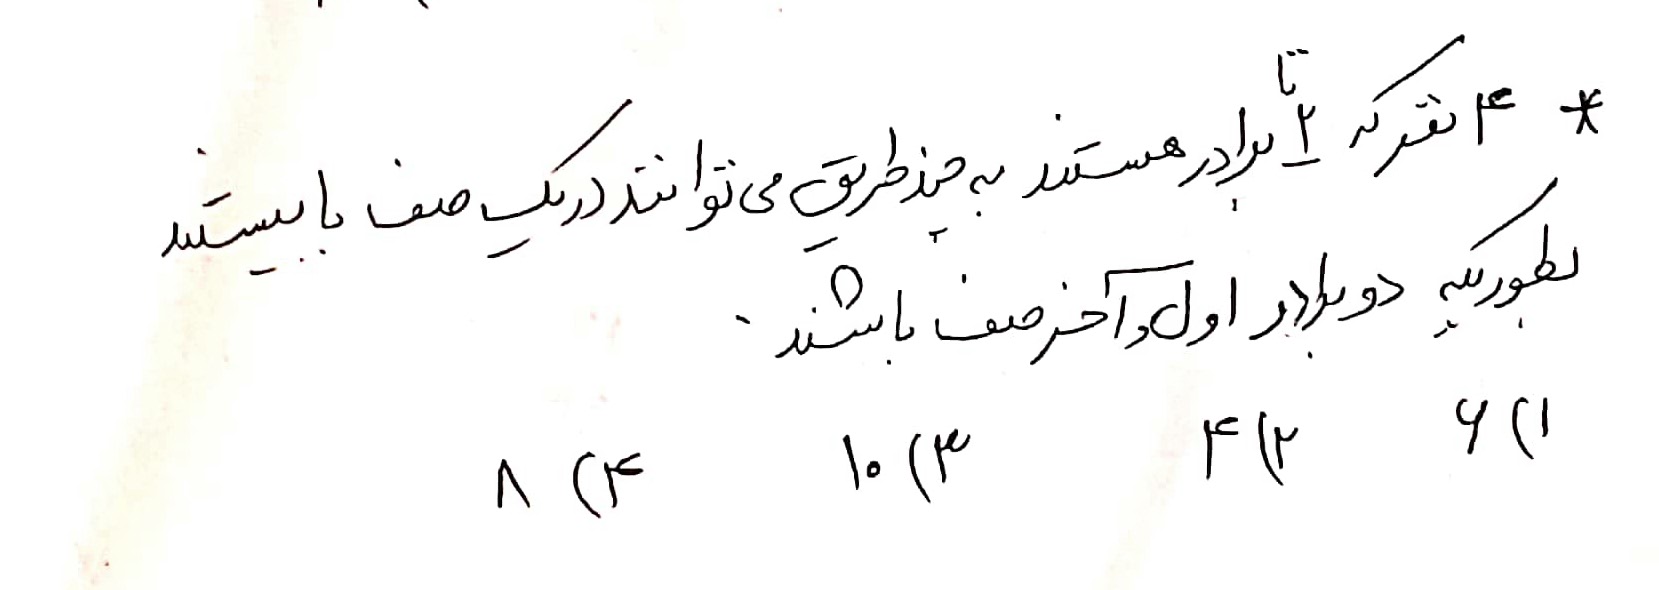 * ۴ نفر که ۲ تا برادر هستند به چند طریق می توانند در یک صف بایستند
بطوریکه دو برادر اول و آخر صف باشند.
۱) ۶ ۲) ۴ ۳) ۱۰ ۴) ۸